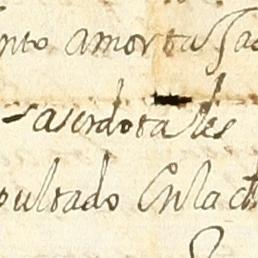 amorta
sacerdotales
pultado En la